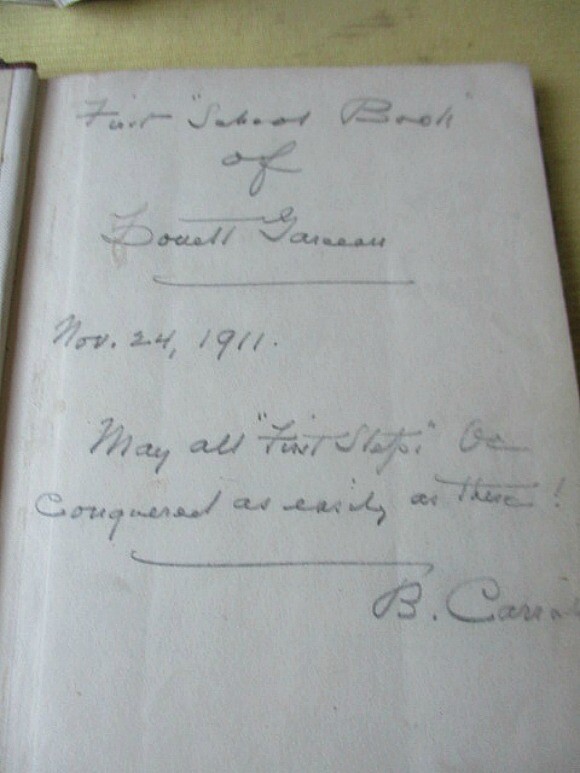 First "School Book"
of
Lovell
Nov. 24, 1911.
May all "First Steps" be
Conquered as easily as these!
B.